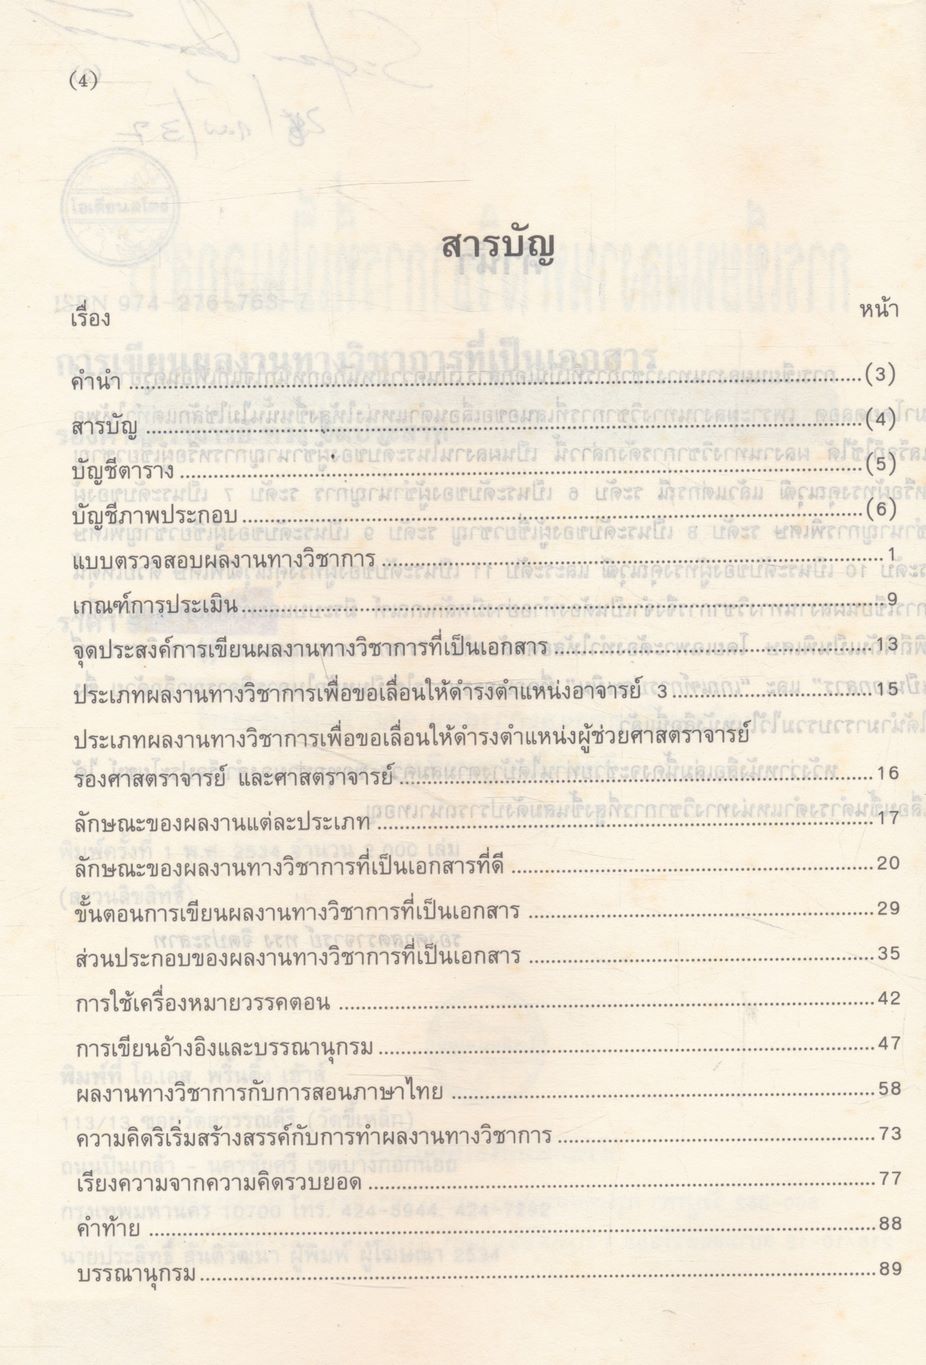 (4)
สารบัญ
เรื่อง หน้า
คำนำ ........ (3)
สารบัญ ........ (4)
บัญชีตาราง ........ (5)
บัญชีภาพประกอบ ........ (6)
แบบตรวจสอบผลงานทางวิชาการ ........ 1
เกณฑ์การประเมิน ........ 9
จุดประสงค์การเขียนผลงานทางวิชาการที่เป็นเอกสาร ........ 13
ประเภทผลงานทางวิชาการเพื่อขอเลื่อนให้ดำรงตำแหน่งอาจารย์ 3 ........ 15
ประเภทผลงานทางวิชาการเพื่อขอเลื่อนให้ดำรงตำแหน่งผู้ช่วยศาสตราจารย์
รองศาสตราจารย์ และศาสตราจารย์ ........ 16
ลักษณะของผลงานแต่ละประเภท ........ 17
ลักษณะของผลงานทางวิชาการที่เป็นเอกสารที่ดี ........ 20
ขั้นตอนการเขียนผลงานทางวิชาการที่เป็นเอกสาร ........ 29
ส่วนประกอบของผลงานทางวิชาการที่เป็นเอกสาร ........ 35
การใช้เครื่องหมายวรรคตอน ........ 42
การเขียนอ้างอิงและบรรณานุกรม ........ 47
ผลงานทางวิชาการกับการสอนภาษาไทย ........ 58
ความคิดริเริ่มสร้างสรรค์กับการทำผลงานทางวิชาการ ........ 73
เรียงความจากความคิดรวบยอด ........ 77
คำท้าย ........ 88
บรรณานุกรม ........ 89